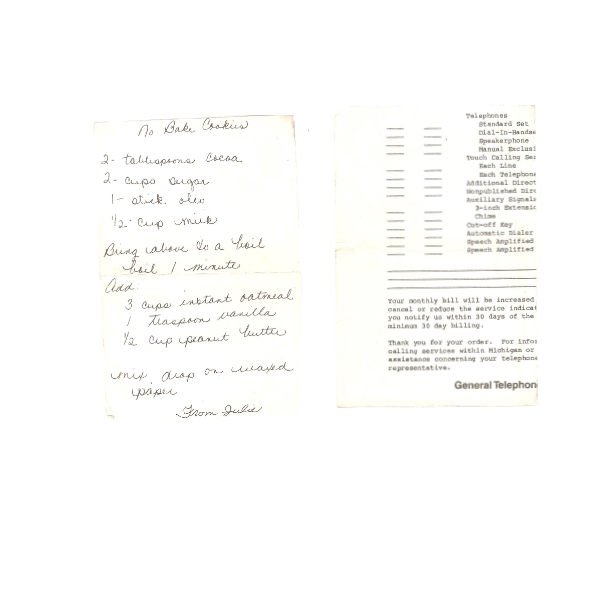 No Bake Cookies
2- tablespoons cocoa
2- cups sugar
1- stick oleo
1/2- cup milk
Bring above to a boil
boil 1 minute
Add:
3 cups instant oatmeal
1 teaspoon vanilla
1/2 cup peanut butter
mix drop on waxed
paper
From Julie
Telephones
Standard Set
Dial-In-Handse
Speakerphone
Manual Exclusi
Touch Calling Ser
Each Line
Each Telephone
Additional Direct
Nonpublished Dire
Auxiliary Signals
3-inch Extensio
Chime
Cut-off Key
Automatic Dialer
Speech Amplified
Speech Amplified
Your monthly bill will be increased
cancel or reduce the service indicat
you notify us within 30 days of the
minimum 30 day billing.
Thank you for your order. For infor
calling services within Michigan or
assistance concerning your telephone
representative.
General Telephon